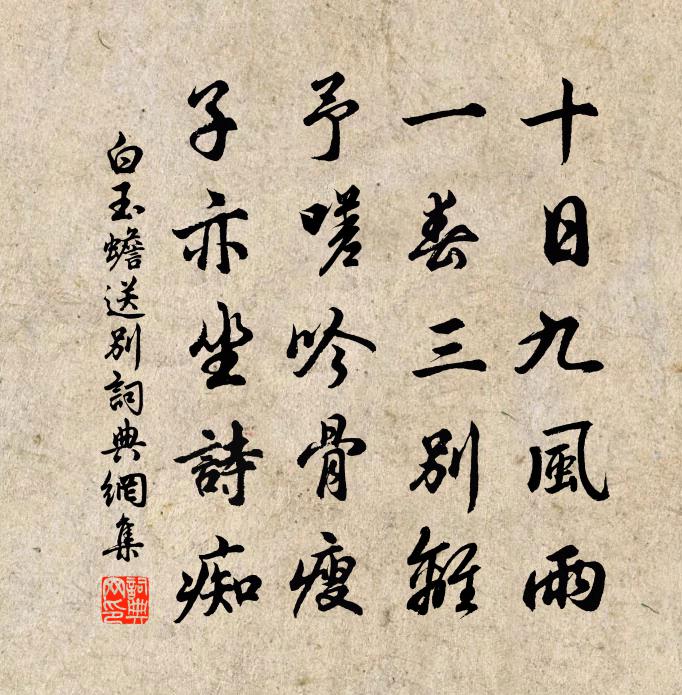 十日九風雨
一春三別離
予嗟吟骨瘦
子亦坐詩痴
白玉蟾送別詞典網集
詞典
網印